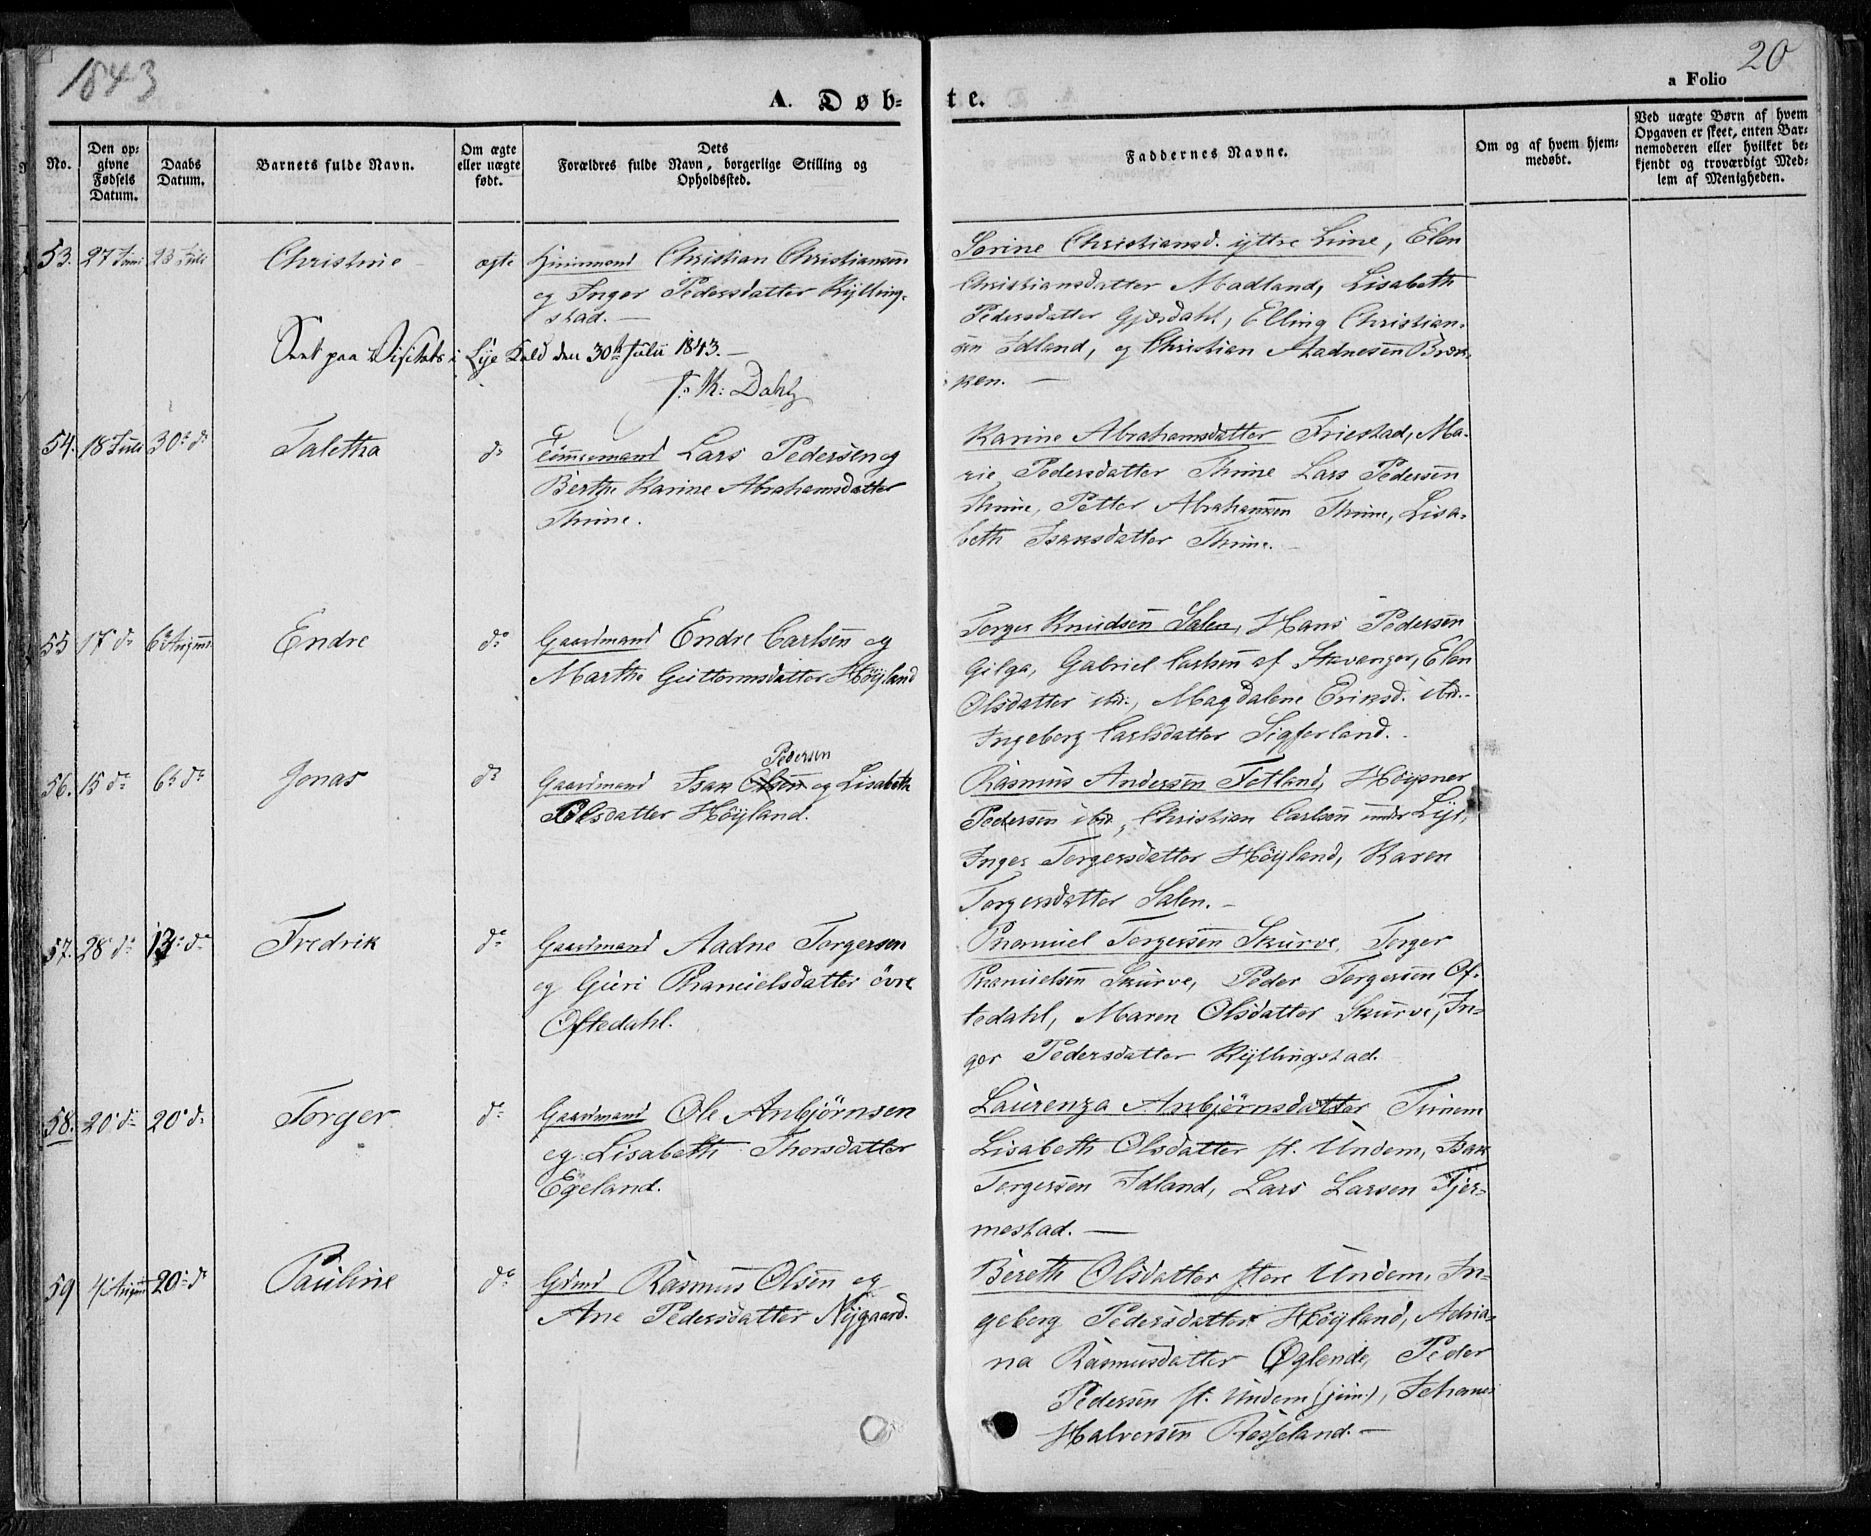 1843
20
a Folio
A. Døb-
te.
No.
Den op-
givne
Fødsels
Datum.
Daabs
Datum.
Barnets fulde Navn.
Om ægte
eller uægte
født.
Dets
Forældres fulde Navn, borgerlige Stilling og
Opholdssted.
Faddernes Navne.
Om og af hvem hjem-
medøbt.
Ved uægte Børn af hvem
Opgaven er skeet, enten Bar-
nemoderen eller hvilket be-
kjendt og troværdigt Med-
lem af Menigheden.
53. 27 Juni 23 Juli Christine ægte Huusmand Christian Christiansen
og Inger Pedersdatter Kylling-
stad. —
Seet paa Visitats i Lye Kald den 30te Julii 1843. —
J: K: Dahl
Sorine Christiansd. yttre Lime, Elen
Christiansdatter Madland, Lisabeth
Pedersdatter Gjesdahl, Elling Christian-
sen Idland, og Christian Aadnesen Bræk-
ken. —
54. 18 Juli 30: do Taletha do Tømmermand Lars Pedersen og
Berthe Karine Abrahamsdatter
Thime.
Karine Abrahamsdatter Friestad, Ma-
rie Pedersdatter Thime Lars Pedersen
Thime, Petter Abrahamsen Thime, Lisa-
beth Isaksdatter Thime. —
55 17 do 6 August Endre do Gaardmand Endre Carlsen og
Marthe Guttormsdatter Höyland
Torger Knudsen Salen, Hans Pedersen
Gilga, Gabriel Carlsen af Stavanger, Elen
Olsdatter ibd., Magdalene Eriksd. ibd.
Ingeborg Carlsdatter Sigferland.
56. 15 do 6te do Jonas do Gaardmand Isak Olsen og Lisabeth
Pedersen
Olsdatter Höyland.
Rasmus Andersen Fotland, Höyner
Pedersen ibd, Christian Carlsen under Lye,
Inger Torgersdatter Höyland, Karen
Torgersdatter Salen. —
57. 28 do 13: do Fredrik do Gaardmand Aadne Torgersen
og Guri Phanuelsdatter övre
Oftedahl.
Phanuel Torgersen Skurve, Torger
Phanuelsen Skurve, Peder Torgersen Of-
tedahl, Maren Olsdatter Skurve, In-
ger Pedersdatter Kyllingstad.
58. 20 do 20 do Torger do Gaardmand Ole Anbjörnsen
og Lisabeth Thorsdatter
Egeland.
Laurenza Anbjörnsdatter Tunem
Lisabeth Olsdatter st. Undem, Isak
Torgersen Idland, Lars Larsen Fjer-
mestad. —
59 4 August 20: do Pauline do Gdmd Rasmus Olsen og
Ane Pedersdatter Nygaard.
Bereth Olsdatter store Undem, In-
geborg Pedersdatter Höyland, Adria-
na Rasmusdatter Øglende, Peder
Pedersen st. Undem (jun:), Johannes
Halversen Rosseland. —